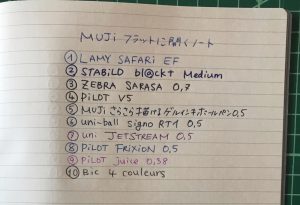 MUJI フラットに開くノート
① LAMY SAFARI EF
② STABiLO bl@ck+ Medium
③ ZEBRA SARASA 0,7
④ PiLOT V5
⑤ MUJI さらさら描けるゲルインキボールペン0,5
⑥ uni-ball signo RT1 0,5
⑦ uni JETSTREAM 0,5
⑧ PiLOT FRiXiON 0,5
⑨ PiLOT juice 0,38
⑩ Bic 4 couleurs